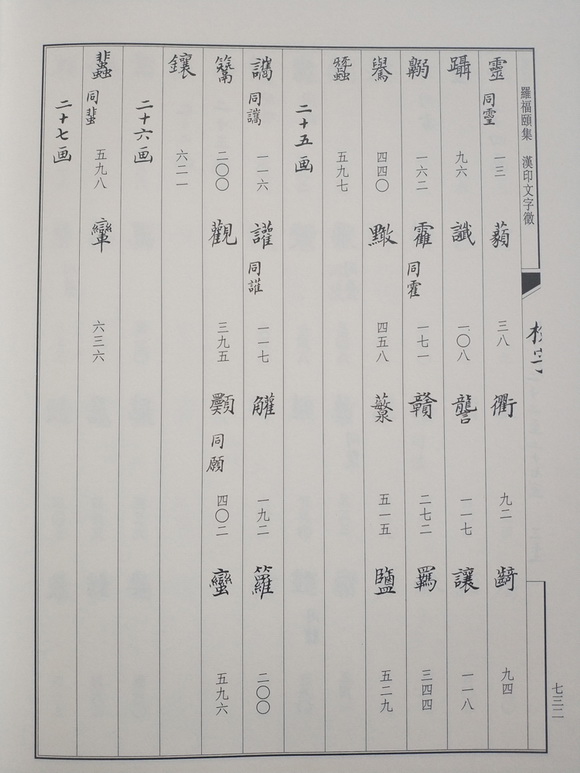 羅福頤集 漢印文字徵
靈 同霊 一三 蘱 三八 衢 九二 齮 九四
躡 九六 讖 一〇八 讋 一一七 讓 一一八
一六二 靃 同霍 一七一 贛 二七二 羈 三四四
鸒 四四〇 黷 四五八 虌 五一五 鹽 五二九
蠶 五九七
二十五画
讗 同讗 一一六 讙 同讙 一一七 觿 一九二 籮 二〇〇
籥 二〇〇 觀 三九五 顥 同願 四〇二 蠻 五九六
鑲 六二一
二十六画
蠤 同蜚 五九八 轡 六三六
二十七画
七三二